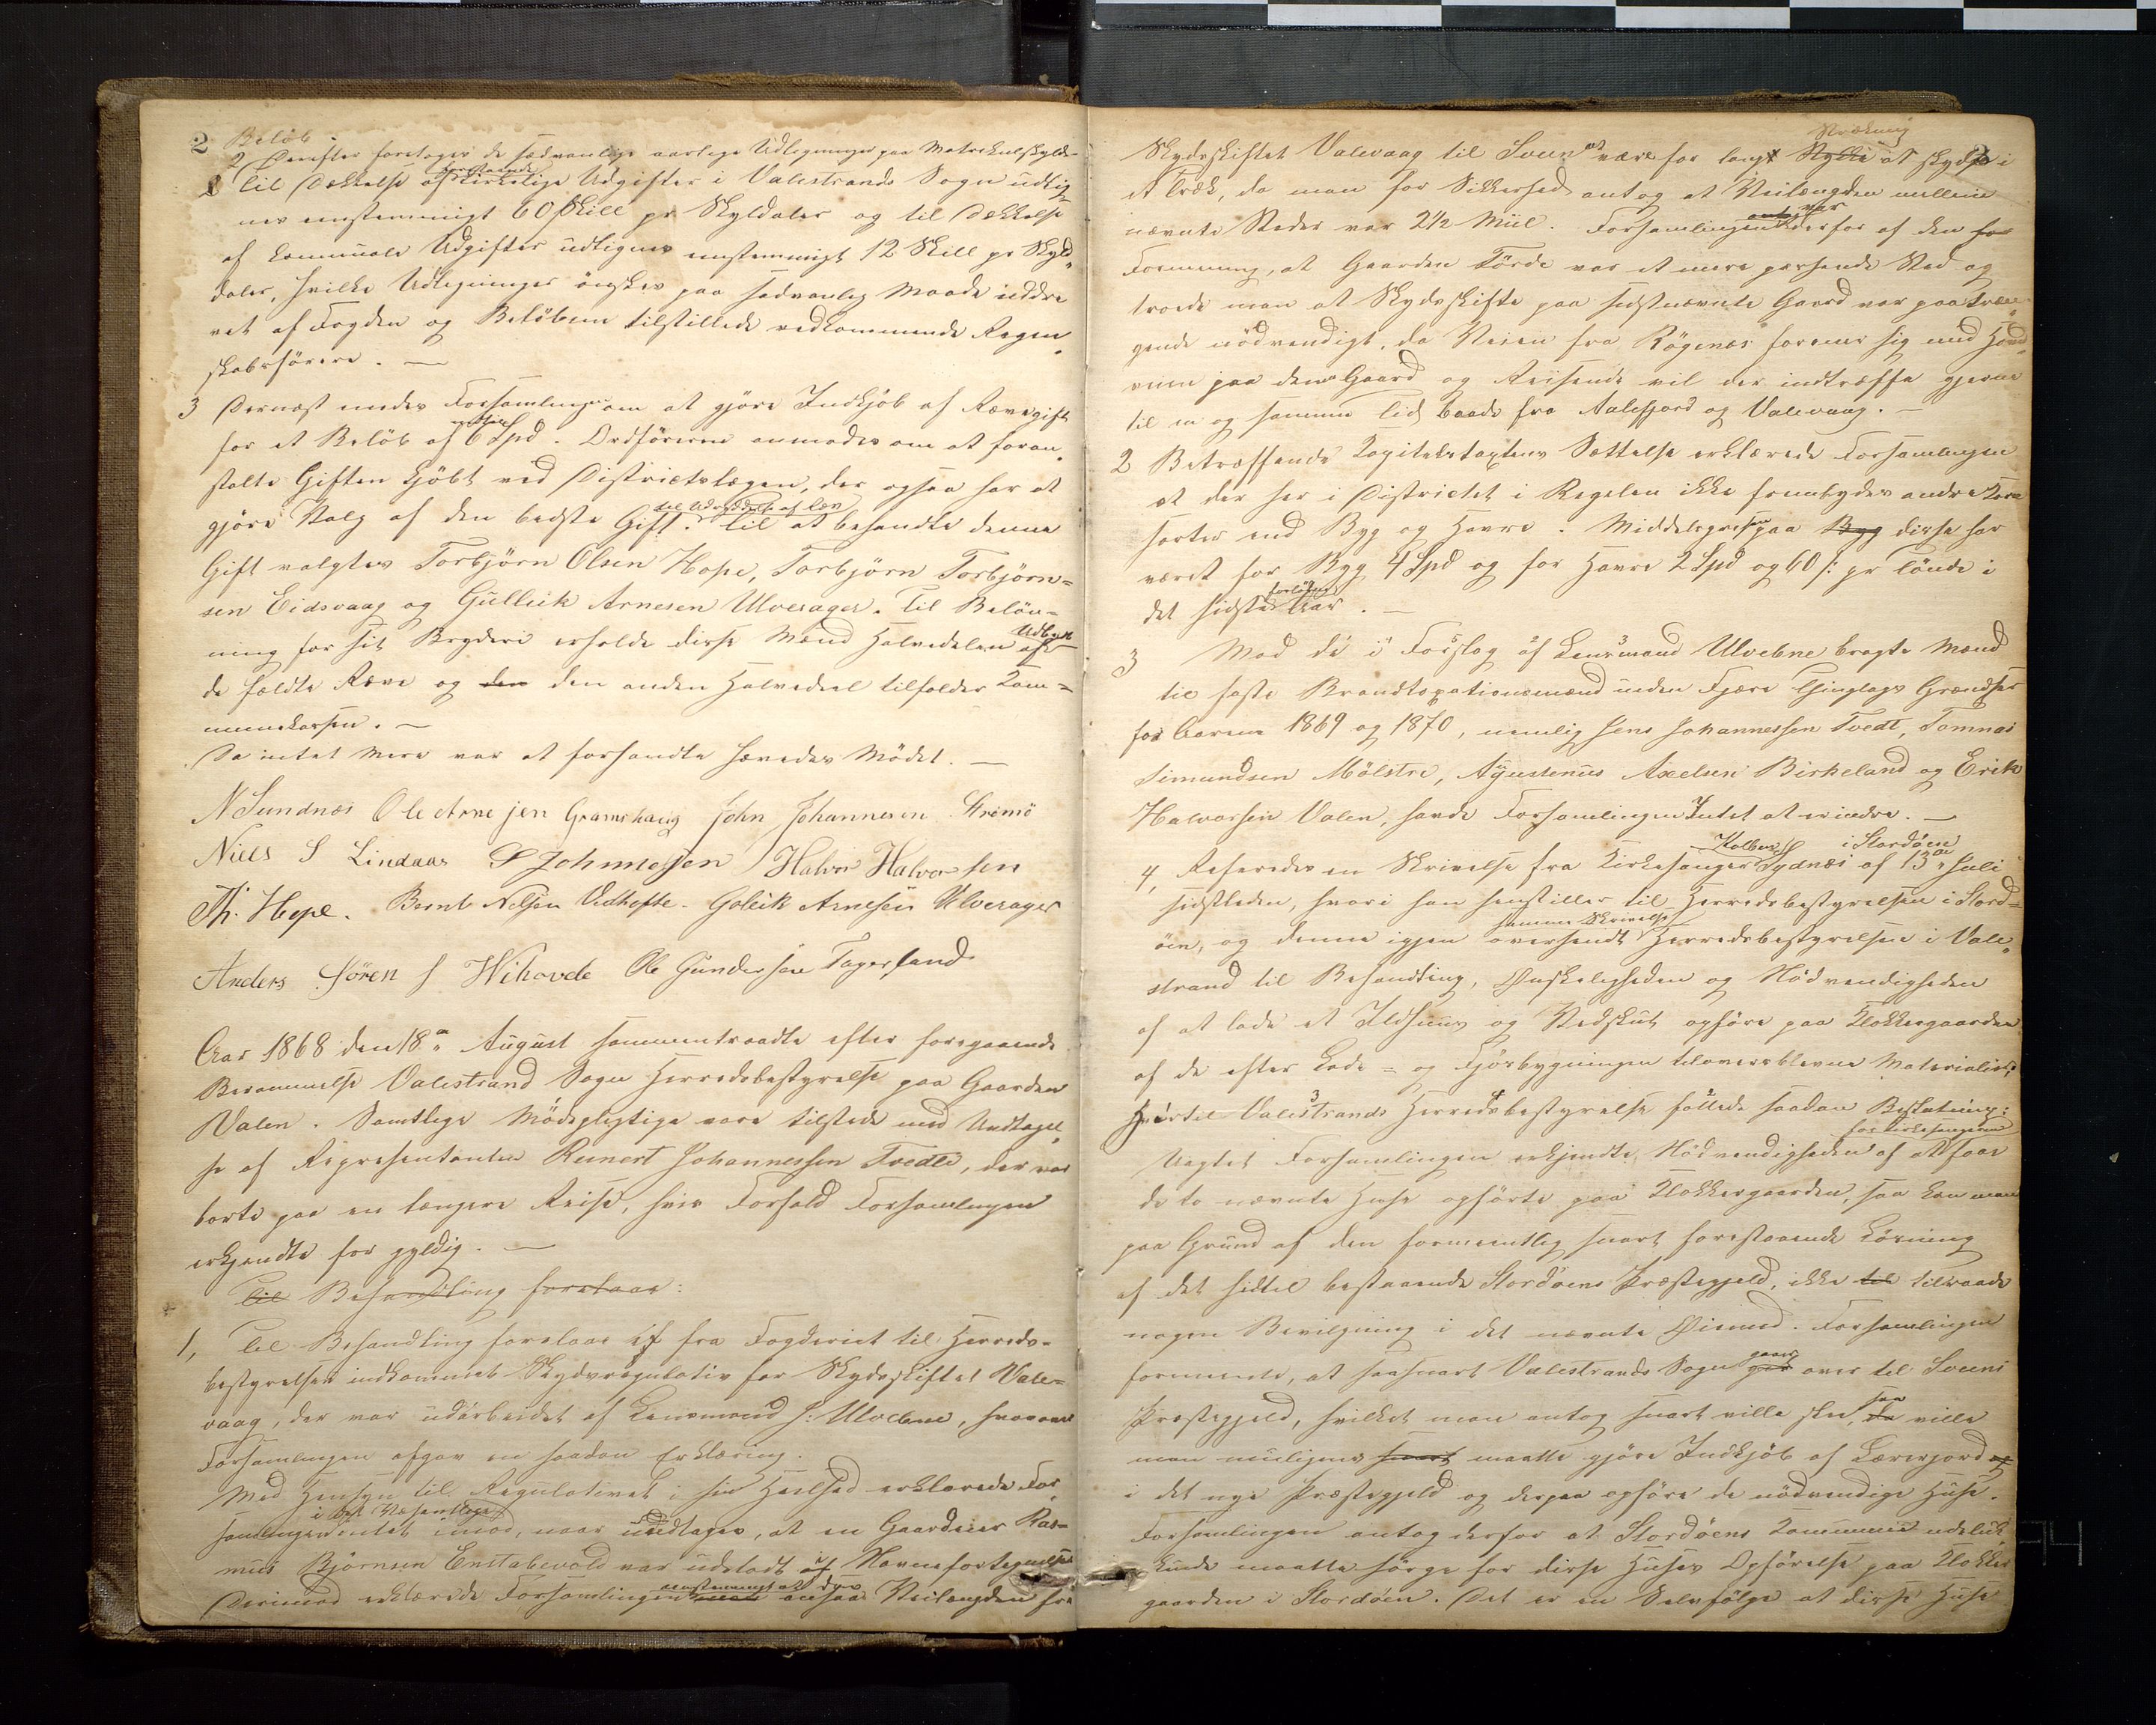 2 Beløb
2 Derefter foretoges de sædvanlige aarlige Udligninger paa Matrikulskylde
Til Dækkelse af kirkelige Udgifter i Valestrands Sogn udlig-
nes enstemmigt 60 Skill pr Skyldaler og til Dækkelse
af komunale Udgifter udlignes enstemmigt 12 Skill pr Skyld
daler, hvilke Udligninger ønskes paa sædvanlig Maade inddre
vet af Fogden og Beløbene tilstillede vedkommende Regn
skabsførere. —
3 Dernæst enedes Forsamlingen om at gjøre Indkjøb af Rævegift
for et Beløb af indtil 6 Spd. Ordføreren anmodes om at foran
stalte Giften kjøbt ved Districtslægen, der ogsaa har at
gjøre Valg af den bedste Gift. til Udryddelse af Ræv Til at behandle denne
Gift valgtes Torbjørn Olsen Hope, Torbjørn Torbjørn=
sen Eidsvaag og Gullick Arnesen Ulverager. Til Beløn=
ning for sit Bryderi erholde disse Mænd Halvedelen af Udbyttet
de fældte Ræve og den den anden Halvedeel tilfalder Kom=
munekassen. —
Da intet mere var at forhandle hævedes Mødet. —
N Sundnæs Ole Arnesen Gramshaug John Johannesen Strømø
Niels S Lindaas S Johnnesen Halvor Halvorsen
Th. Hope. Bernt Nilsen Vedhofte. Golleik Arnesen Ulverager
Anders Sören S Wihovde Ole Gundersen Fagerland
Aar 1868 den 18de August sammentraadte efter foregaaende
Berammelse Valestrand Sogns Herredsbestyrelse paa Gaarden
Valen. Samtlige Mødepligtige vare tilstede med Undtagel
se af Repræsentanten Reinert Johannessen Tvedte, der var
borte paa en længere Reise, hvis Forfald Forsamlingen
erkjendte for gyldig. —
Til Behandling forelaae:
1, Til Behandling forelaae et fra Fogderiet til Herreds-
bestyrelsen indkommet Skydsregulativ for Skydsskiftet Vale=
vaag, der var udarbeidet af Lensmand J: Ulvebne, hvorom
Forsamlingen afgav en saadan Erklæring.
Med Hensyn til Regulativet i sin Heelhed erklærede For
samlingen i det Væsentlige intet imod, naar undtages, at en Gaardeier Ras=
mus Bjørnsen Enstabevold var udeladt af Navnefortegnelsen
Derimod erklærede Forsamlingen enstemmigt at den ansaa Veilængden fra
Skydsskiftet Valevaag til Sveen at være for langt Strækning Stykke at skydse i
et Træk, da man for Sikkerhed antog at Veilængden mellem
nævnte Steder var 2½ Miil. Forsamlingen var derfor af den fo
Formening, at Gaarden Førde var et mere passende Sted og
troede man at Skydsskifte paa sidstnævnte Gaard var paatræn
gende nødvendigt, da Veien fra Røgenæs forener sig med Hoved
veien paa denne Gaard og Reisende vil der indtræffe gjerne
til en og samme Tid baade fra Aalfjord og Valevaag.
2 Betræffende Kapitelstaxtens Sættelse erklærede Forsamlingen
at der her i Districtet i Regelen ikke frembydes andre Korn
sorter end Byg og Havre. Middelsprisen paa Byg disse har
været for Byg 4 Spd og for Havre 2 Spd og 60 s: pr Tønde i
det sidste forløbne Aar. —
3 Mod de i Forslag af Lensmand Ulvebne bragte Mænd
til faste Brandtaxationsmænd inden Fjære Thinglags Grændser
for Aarene 1869 og 1870, nemlig Jens Johannessen Tvedt, Tomnas
Simundsen Mölstre, Agustenus Axelsen Birkeland og Erik
Halvorsen Valen, havde Forsamlingen Intet at erindre. —
4, Refereredes en Skrivelse fra Kirkesanger Kolben Sydnæs i Stordøen af 13de Juli
sidstleden, hvori han henstiller til Herredsbestyrelsen i Stord=
øen, og denne igjen oversendt samme Skrivelse Herredsbestyrelsen i Vale
strand til Behandling, Ønskeligheden og Nødvendigheden
af at lade et Ildhuus og Vedskut opføre paa Klokkergaarden
af de efter Lade= og Fjøsbygningen tiloversblevne Materialier.
Hertil Valestrands Herredsbestyrelse fattede saadan Beslutning:
Uagtet Forsamlingen erkjendte Nødvendigheden af at for Kirkesangeren faae
de to nævnte Huse opførte paa Klokkergaarden, saa kan man
paa Grund af den formeentlig snart forestaaende Løsning
af det hidtil bestaaende Stordøens Præstegjeld, ikke til tilraade
nogen Bevilgning i det nævnte Øiemed. Forsamlingen
formeente, at saasnart Valestrands Sogn gaar over til Sveens
Præstegjeld, hvilket man antog snart ville skee, saa ville
man muligens snart maatte gjøre Indkjøb af Lærerjord og
i det nye Præstegjeld og derpaa opføre de nødvendige Huse.
Forsamlingen antog derfor at Stordøens Kommune udeluk
kende maatte sørge for disse Huses Opførelse paa Klokker
gaarden i Stordøen. Det er en Selvfølge at disse Huse